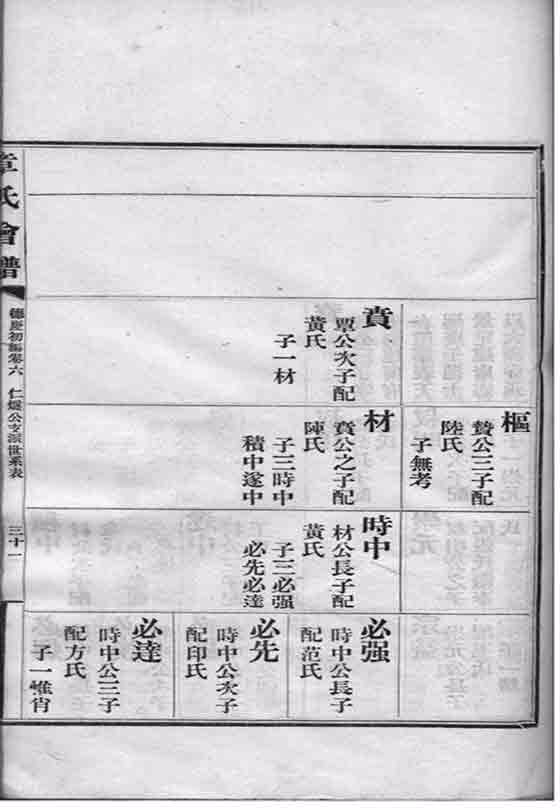 賁
覃公次子配
黃氏
子一材
樞
贄公三子配
陸氏
子無考
材
賁公之子配
陳氏
子三時中
積中遂中
時中
材公長子配
黃氏
子三必强
必先必達
必强
時中公長子
配范氏
必先
時中公次子
配印氏
必達
時中公三子
配方氏
子一惟肖
章氏會譜
德慶初編卷六
仁公支派世系表
三十一